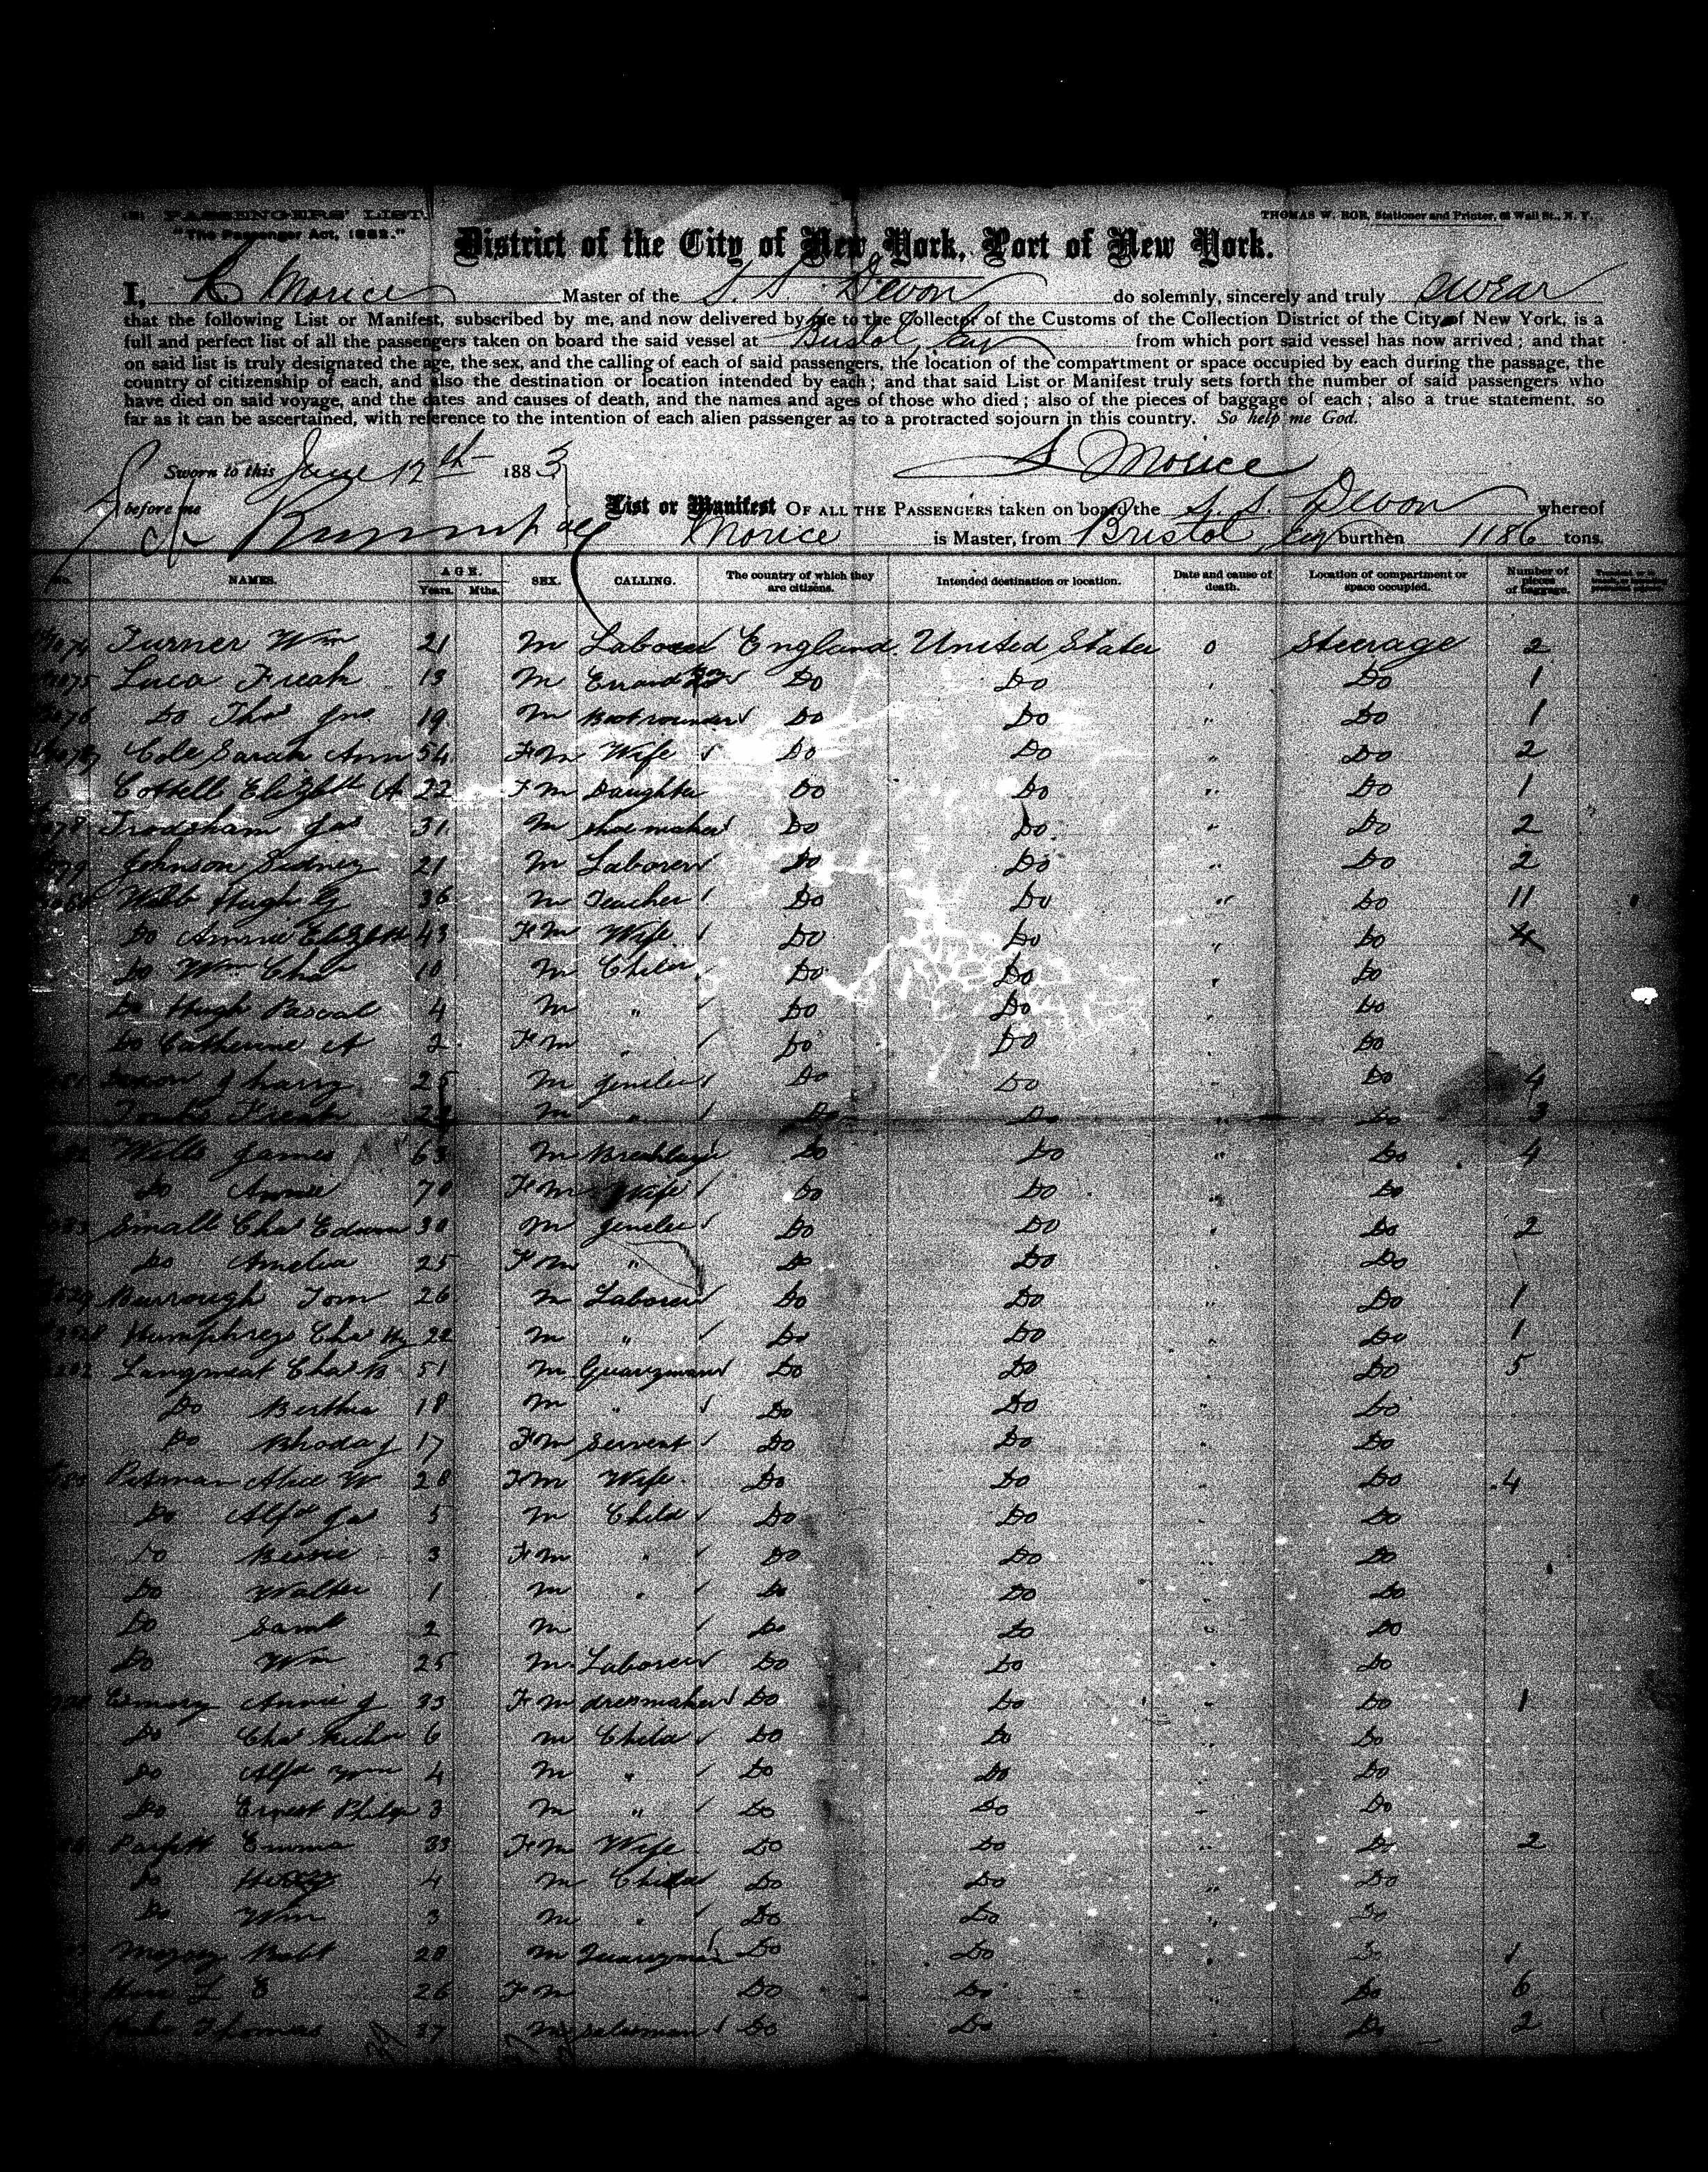 PASSENGERS' LIST.
"The Passenger Act, 1882."
THOMAS W. ROE, Stationer and Printer, Wall St., N. Y.
District of the City of New York, Port of New York.
I, Morice Master of the S. S. Devon do solemnly, sincerely and truly swear
that the following List or Manifest, subscribed by me, and now delivered by me to the Collector of the Customs of the Collection District of the City of New York, is a
full and perfect list of all the passengers taken on board the said vessel at Bristol Eng from which port said vessel has now arrived; and that
on said list is truly designated the age, the sex, and the calling of each of said passengers, the location of the compartment or space occupied by each during the passage, the
country of citizenship of each, and also the destination or location intended by each; and that said List or Manifest truly sets forth the number of said passengers who
have died on said voyage, and the dates and causes of death, and the names and ages of those who died; also of the pieces of baggage of each; also a true statement, so
far as it can be ascertained, with reference to the intention of each alien passenger as to a protracted sojourn in this country. So help me God.
Sworn to this June 12th 1883 Morice
before me
List or Manifest OF ALL THE PASSENGERS taken on board the S. S. Devon whereof
Morice is Master, from Bristol, Eng burthen 1186 tons.
No. NAMES. AGE. Years. Mths. SEX. CALLING. The country of which they are citizens. Intended destination or location. Date and cause of death. Location of compartment or space occupied. Number of pieces of baggage.
Turner Wm 21 M Laborer England United States 0 Steerage 2
Luca Freak 13 M Errand Do Do Do 1
Do Thos Jno 19 M Do Do " Do 1
Cole Sarah Ann 54 Fm Wife Do Do " Do 2
Cottell Elizbth A 22 Fm Daughter Do Do " Do 1
Frodsham Jas 31 M Shoemaker Do Do " Do 2
Johnson Sidney 21 M Laborer Do Do " Do 2
Webb Hugh G 36 M Teacher Do Do " Do 11
Do Annie Elizbth 43 Fm Wife Do Do " Do
Do Wm Chas 10 M Child Do Do " Do
Do Hugh Pascal 4 M " Do Do " Do
Do Catherine A 2 Fm " Do Do Do
J harry 25 M Do Do " Do 4
Freak M " Do Do " Do 3
Wills James 63 M Do Do " Do 4
Do Annie 70 Fm Wife Do Do " Do
Small Chas Edwin 30 M Do Do " Do 2
Do Amelia 25 Fm " Do Do " Do
Burrough Tom 26 M Laborer Do Do " Do 1
Humphreys Chas Hy 22 M " Do Do " Do 1
Langmeat Chas B 51 M Quarryman Do Do Do 5
Do Berthia 18 M " Do Do " Do
Do Rhoda J 17 Fm Servent Do Do " Do
Pitman Alice W 28 Fm Wife Do Do " Do 4
Do Alfd Jas 5 M Child Do Do " Do
Do Bessie 3 Fm " Do Do " Do
Do Walter 1 M " Do Do " Do
Do Saml 2 M Do Do " Do
Do Wm 25 M Laborer Do Do " Do
Emery Annie J 33 Fm dressmaker Do Do " Do 1
Do Chas 6 M Child Do Do " Do
Do Alfd Wm 4 M " Do Do " Do
Do Ernest Philip 3 M " Do Do Do
Parfitt Emma 33 Fm Wife Do Do " Do 2
Do 4 M Child Do Do " Do
Do Wm 3 M " Do Do " Do
Robt 20 M Quarryman Do Do " Do 1
26 Fm Do Do " Do 6
Thomas 37 M salesman Do Do Do 2